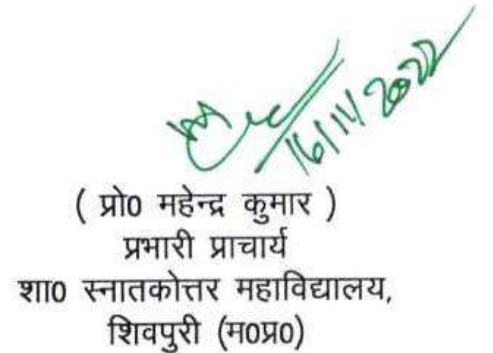 16/11/2022
( प्रो0 महेन्द्र कुमार )
प्रभारी प्राचार्य
शा0 स्नातकोत्तर महाविद्यालय,
शिवपुरी (म0प्र0)